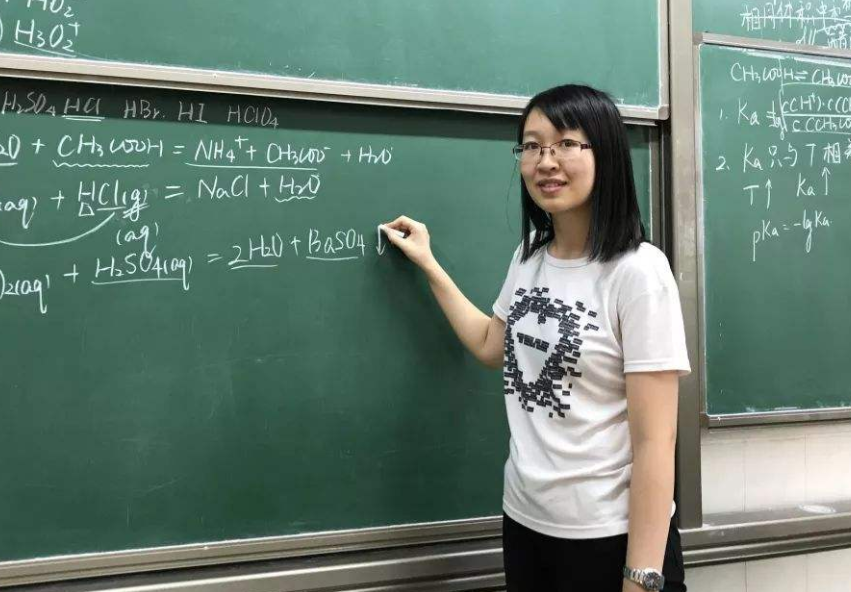 HO₂
H₃O₂⁺
H₂SO₄ HCl HBr. HI HClO₄
+ CH₃COOH = NH₄⁺ + CH₃COO⁻ + H₂O
(aq) + HCl(g) = NaCl + H₂O
(aq)
)₂(aq) + H₂SO₄(aq) = 2H₂O + BaSO₄ ↓
CH₃COOH ⇌ CH₃COO
1. Ka =
2. Ka 只与 T 相
T↑ Ka↑
pKa = -lg Ka